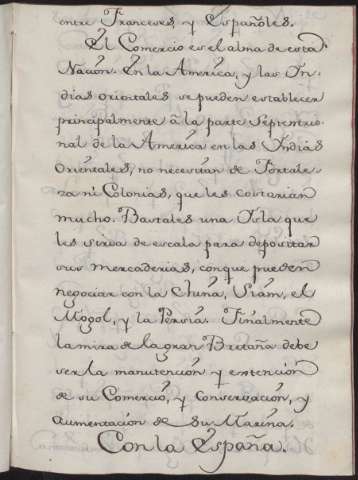 entre Franceses, y Españoles.
El Comercio es el alma de esta
Nación. En la América, y las In-
dias orientales se pueden establecer
principalmente â la parte septentrio-
nal de la América en las Indias
Orientales, no necesitan de Fortale-
za ni Colonias, que les costarian
mucho. Bastales una Isla que
les sirva de escala para depositar
sus mercaderias, conque pueden
negociar con la China, Siam, el
Mogol, y la Persia. Finalmente
la mira de la gran Bretaña debe
ser la manutención y extención
de su Comercio, y Conservación, y
aumentación de Su Marina.
Con la España.